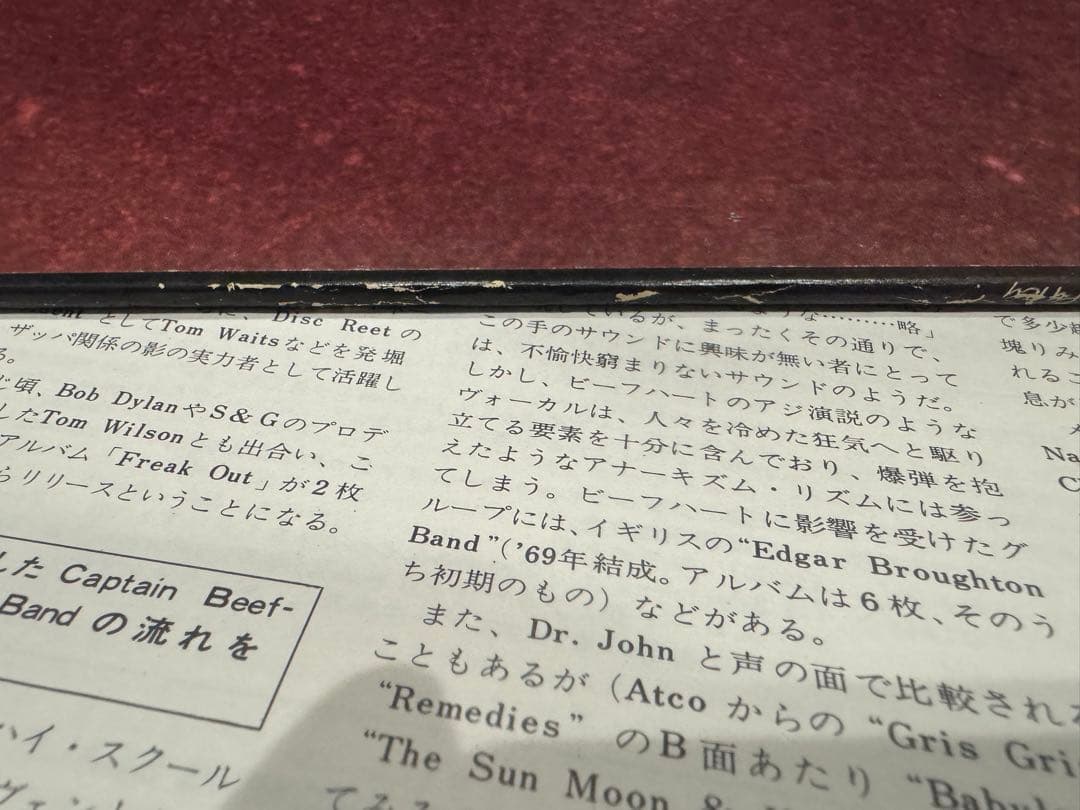 、Disc Reetの
としてTom Waitsなどを発掘
ザッパ関係の影の実力者として活躍し
る。
頃、Bob DylanやS&Gのプロデ
したTom Wilsonとも出合い、こ
アルバム「Freak Out」が2枚
らリリースということになる。
した Captain Beef-
Band の流れを
ハイ・スクール
………略」
ているが、まったくその通りで、
この手のサウンドに興味が無い者にとって
は、不愉快窮まりないサウンドのようだ。
しかし、ビーフハートのアジ演説のような
ヴォーカルは、人々を冷めた狂気へと駆り
立てる要素を十分に含んでおり、爆弾を抱
えたようなアナーキズム・リズムには参っ
てしまう。ビーフハートに影響を受けたグ
ループには、イギリスの“Edgar Broughton
Band”('69年結成。アルバムは6枚、そのう
ち初期のもの）などがある。
また、Dr. John と声の面で比較される
こともあるが（Atco からの “Gris Gri
“Remedies” のB面あたり
“The Sun Moon &
てみる
で多少
塊りみ
れるこ
息が
Na